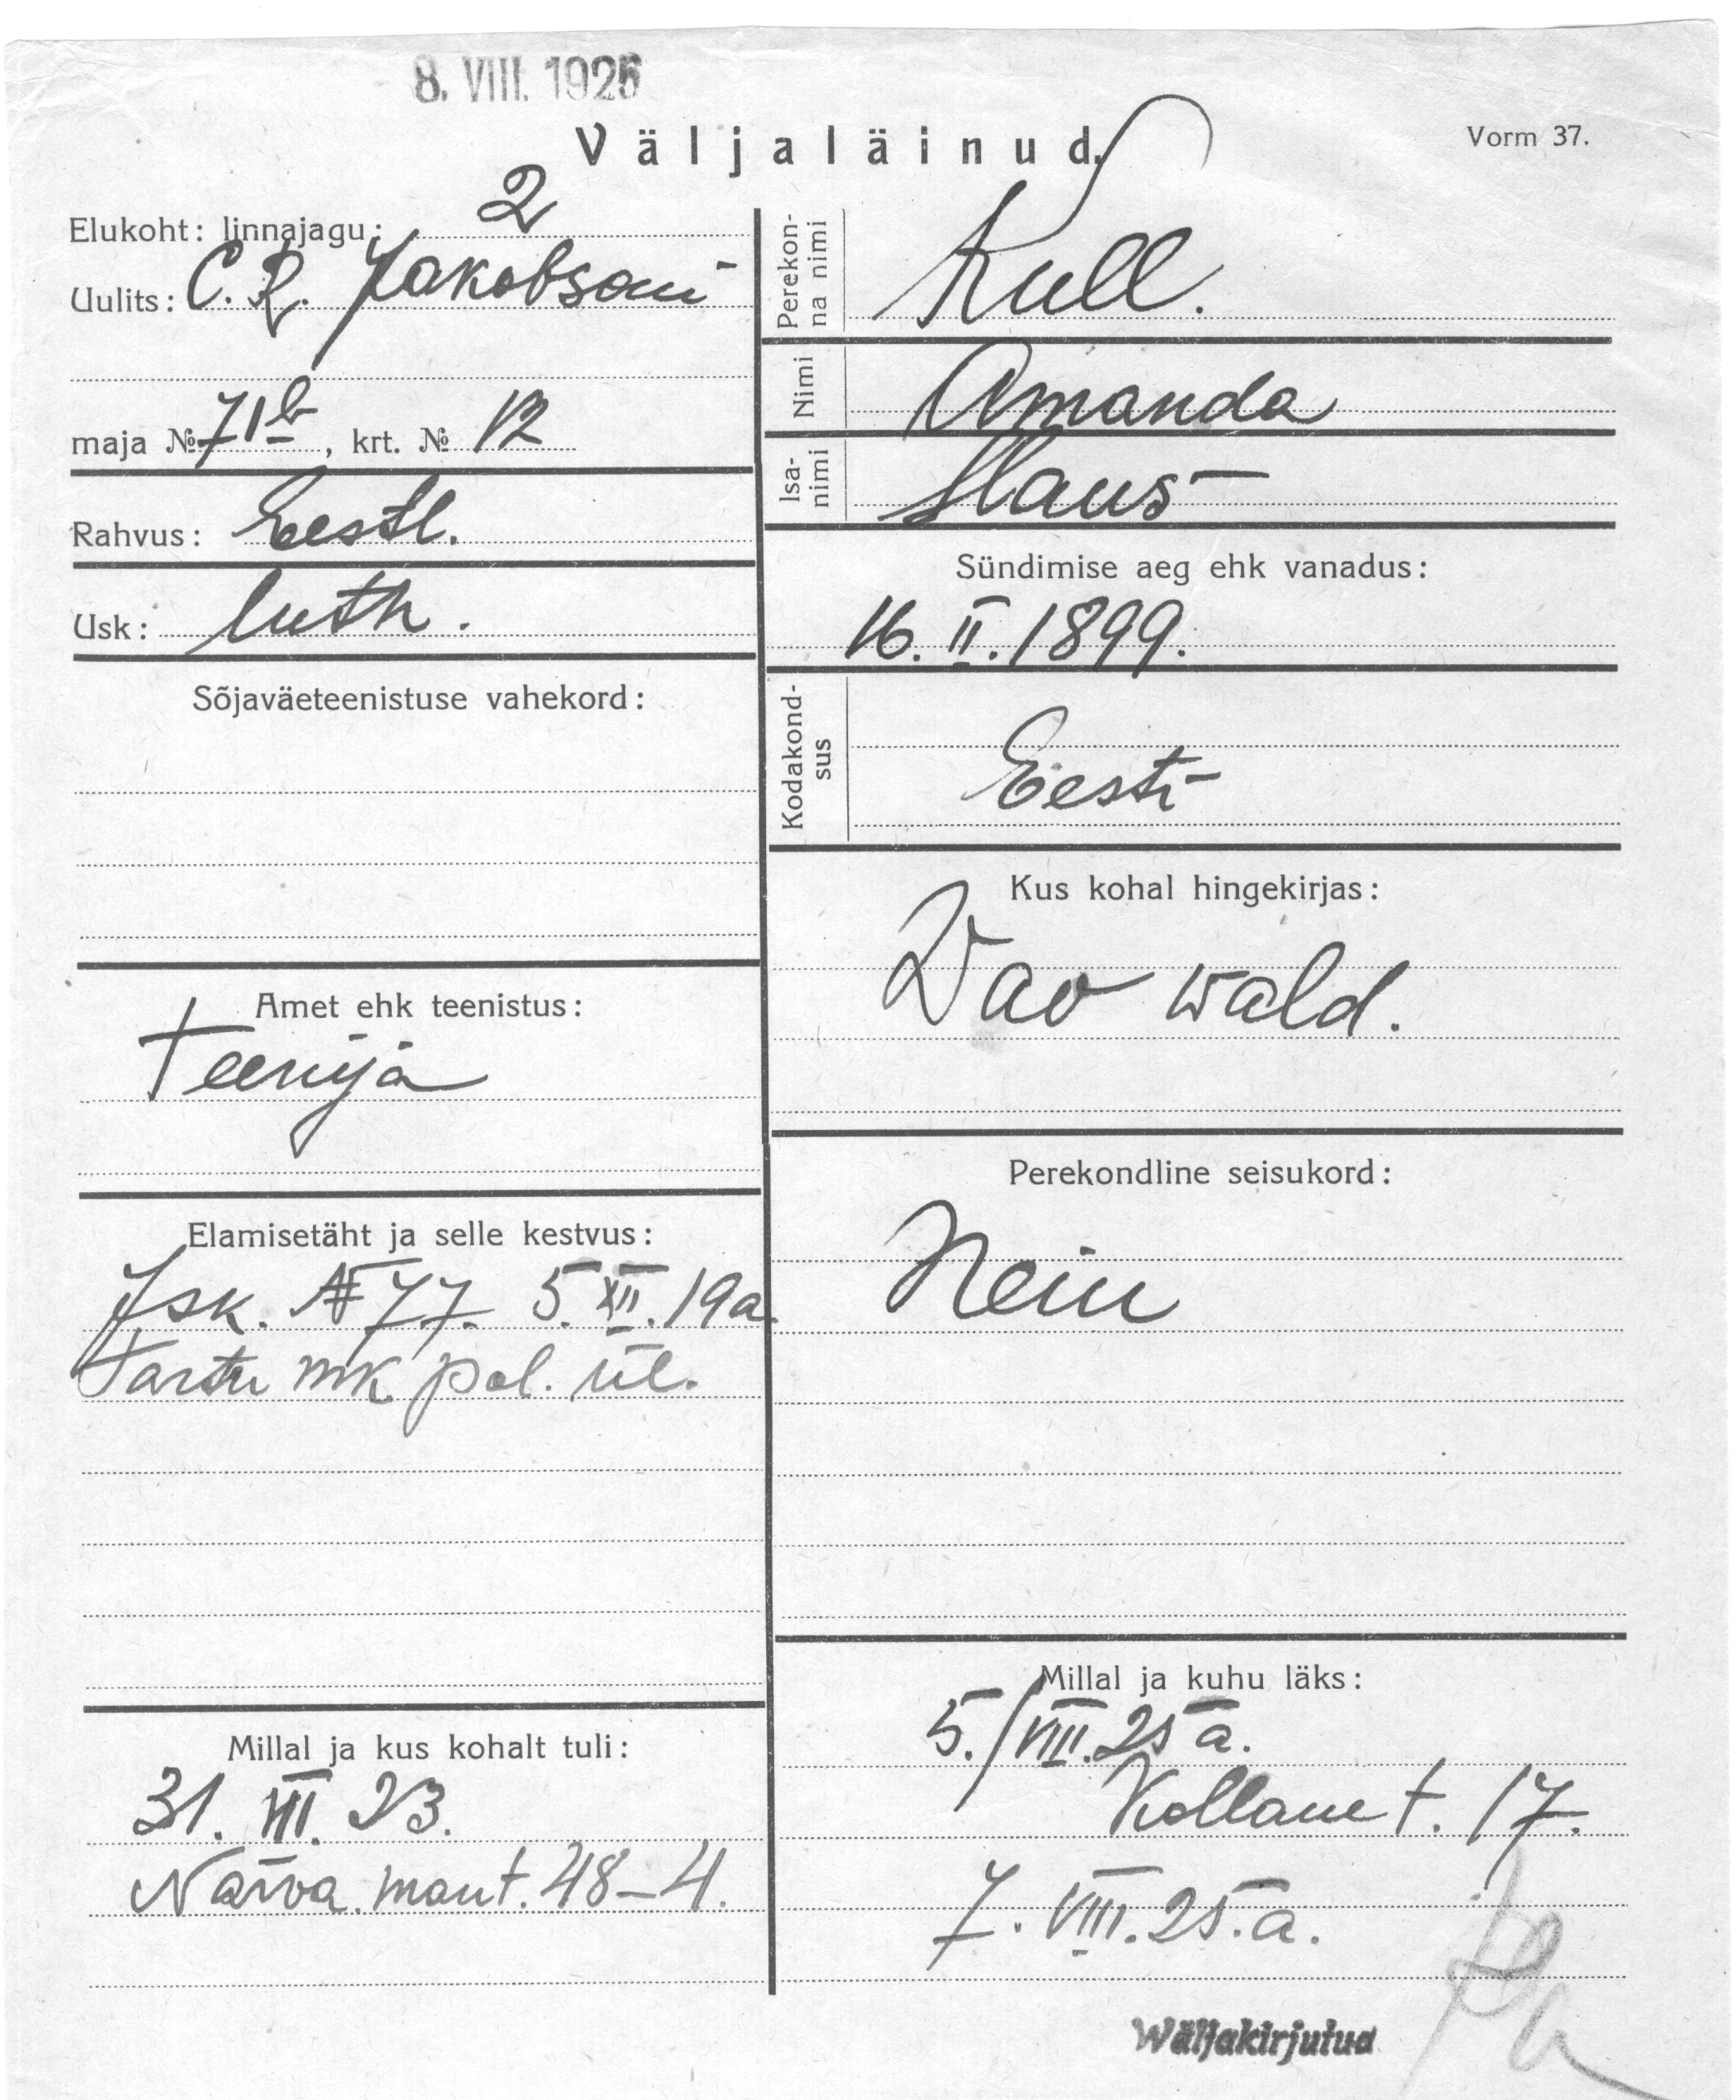 8. VIII. 1925
Väljaläinud.
Vorm 37.
Elukoht: linnajagu: 2
Uulits: C. R. Jakobsoni
maja № 71b, krt. № 12
Rahvus: Eestl.
Usk: luth.
Sõjaväeteenistuse vahekord:
Amet ehk teenistus:
Teenija
Elamisetäht ja selle kestvus:
Isk. № 77. 5. XII. 19a.
Tartu mk pol. ül.
Millal ja kus kohalt tuli:
31. VII. 23.
Narva mant. 48–4.
Perekon-
na nimi
Kull.
Nimi
Amanda
Isa-
nimi
Hans
Sündimise aeg ehk vanadus:
16. II. 1899.
Kodakond-
sus
Eesti
Kus kohal hingekirjas:
Vao wald.
Perekondline seisukord:
Neiu
Millal ja kuhu läks:
5./VIII. 25 a.
Kollane t. 17.
7. VIII. 25. a.
Wäljakirjutud